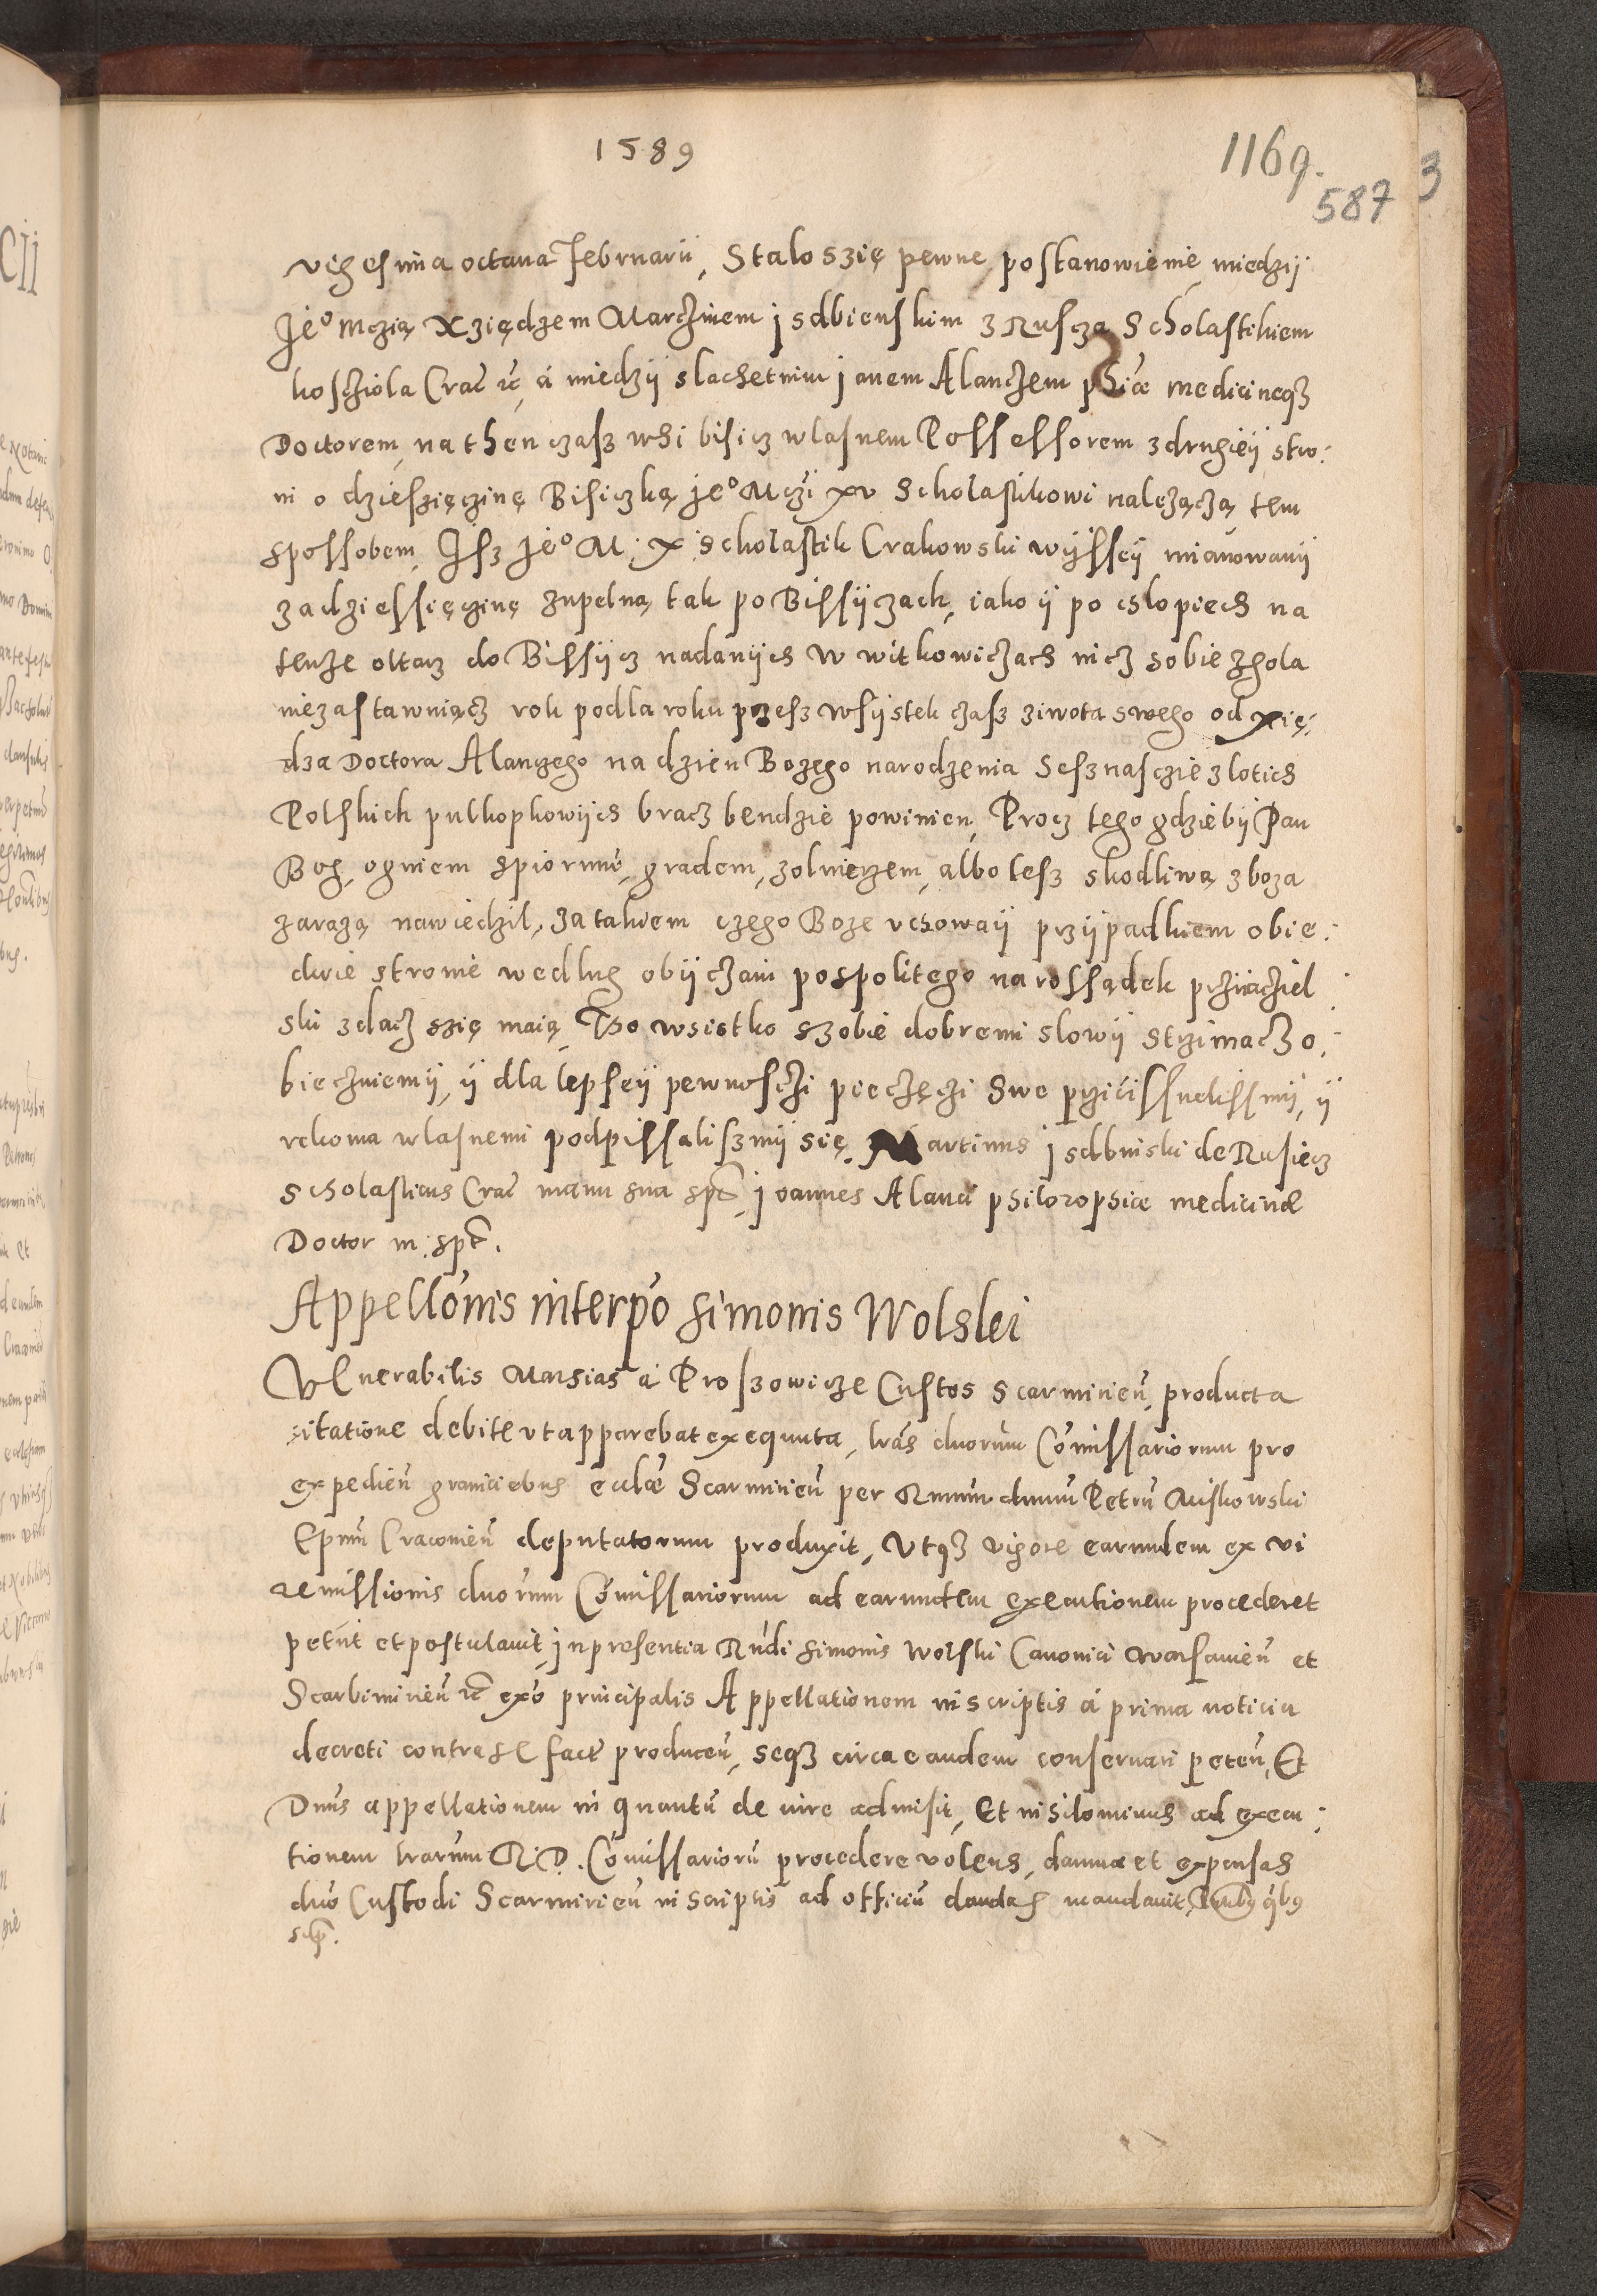 1589
1169.
587
3
vigesima octaua Februarii, Stalo szię pewne postanowienie miedzij
Je⁰ mczią Xziędzem Marczinem jsdbienskim z Ruscza Scholastikiem
koscziola Crac̃ ẽc, á miedzij slachetnim janem Alanczem phiæ medicineqz
Doctorem, na then czasz wsi bisicz wlasnem Possessorem z drugieij stro:
ni o dzieszięczinę Bisiczką je⁰ Mczi xu Scholastikowi nalezączą tem
spossobem, Jsz je⁰ M: X scholastik Crakowski wijsseij mianowanij
za dziessięczinę zupelną tak po Bissijczach, iako ij po chlopiech na
tenze oltarz do Bissijcz nadanijch w witkowiczach nicz sobie zgola
niezastawuiącz rok podla roku przesz wsijstek czasz ziwota swego od xię:
dza Doctora Alanczego na dzien Bozego narodzenia Sesznasczie zlotich
Polskich pulkopkowijch bracz bendzie powinien, Procz tego gdziebij Pan
Bog, ogniem spiorunẽ, gradem, zolnierzem, albo tesz skodliwą zboza
zarazą nawiedzil, za takiem czego Boze vchowaij przijpadkiem obie:
dwie stronie wedlug obijczaiu pospolitego na rossądek prziiacziel
ski zdacz szię maią, Tho wsistko szobie dobremi slowij strzimacz o,
biecziuemij, ij dla lepseij pewnosczi pieczęczi swe przicissnelissmij, ij
rekoma wlasnemi podpissaliszmij się. Martinus jsdbinski de Rusiecz
scholasticus Crac̃ manu sua spt̃, joannes Alanci philozophiæ medicinæ
Doctor m: spt̃.
Appellõnis interpõ simonis Wolskei
Venerabilis Mathias á Proszowicze Custos Scarmirieñ, producta
citatione debite vt apparebat exequuta, lr̃as duorum Com̃issariorum pro
expedieñ graniciebus ecclæ Scarmirieñ per Rmum dnum Petrũ Miskowski
Ep̃um Cracovieñ deputatorum produxit, Vtqz vigore earundem ex vi
remissionis duorum Com̃issariorum ad earundem executionem procederet
petiit et postulauit, in presentia Rñdi simonis wolski Canonici Warsauieñ et
Scarbimirieñ ẽc exõ principalis Appellationem in scriptis á prima noticia
decreti contra se facti produceñ, seqz circa eandem conseruari peteñ, Et
Dnus appellationem in quantũ de iure admisit, Et nihilominus ad execu:
tionem lr̃arum R.D. Com̃issariorũ procedere volens, damna et expensas
dnõ Custodi Scarmirieñ in scriptis ad officiũ dandas mandauit, q̃bus
sup̃.